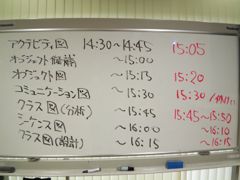 アクティビティ図 14:30~14:45 15:05
オブジェクト候補 ~15:00
オブジェクト図 ~15:15 15:20
コミュニケーション図 ~15:30 15:30
クラス図(分析) ~15:45 15:45~15:50
シーケンス図 ~16:00 ~16:10
クラス図(設計) ~16:15 ~16:15